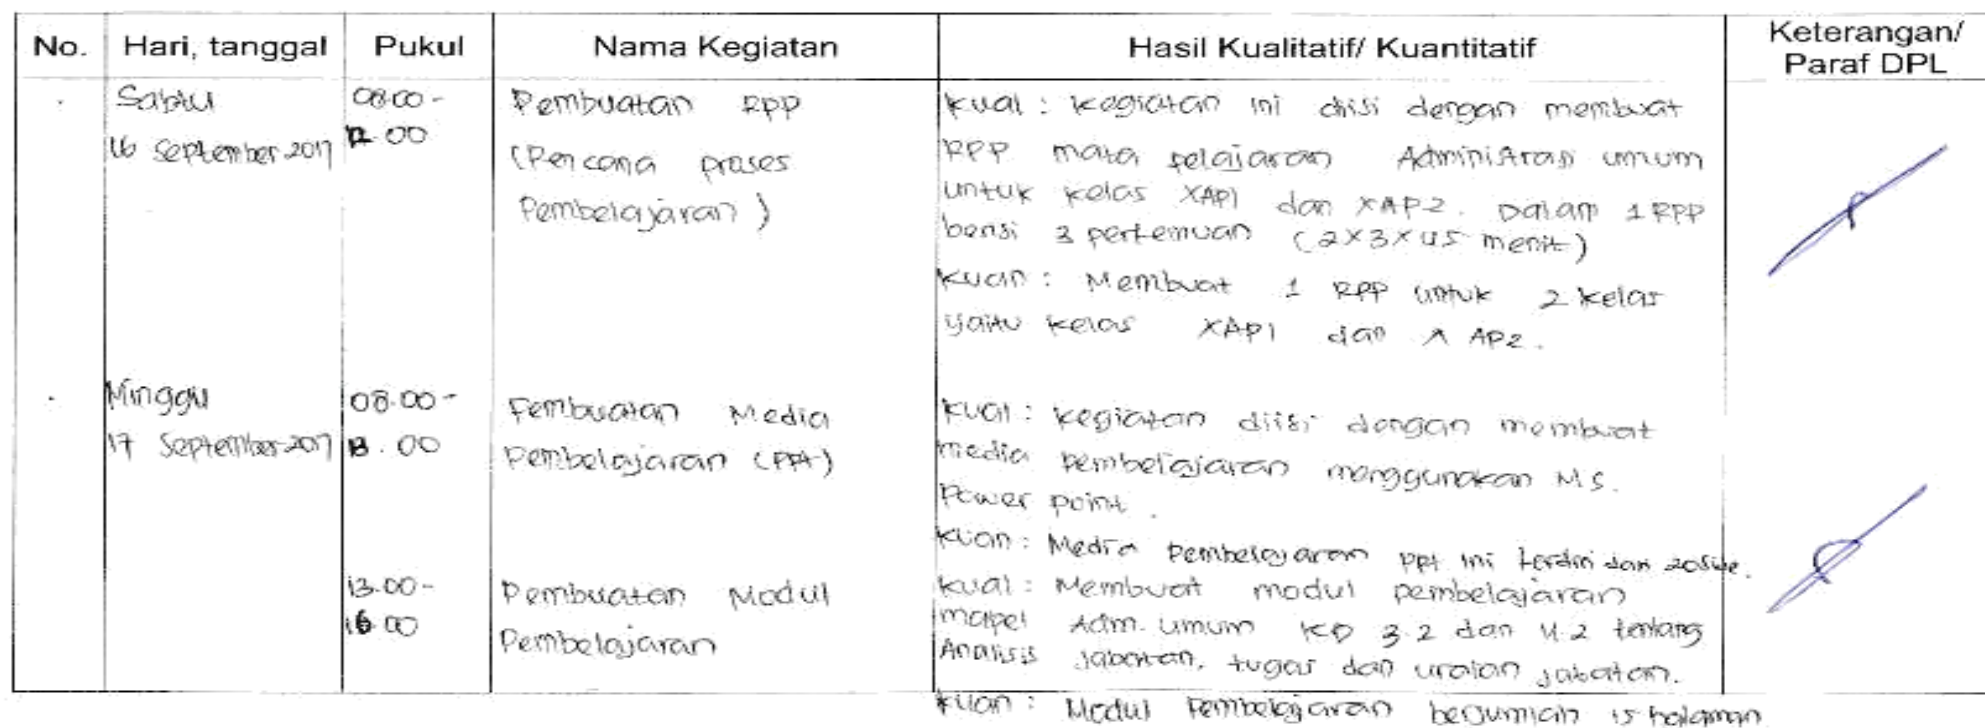 No. Hari, tanggal Pukul Nama Kegiatan Hasil Kualitatif/ Kuantitatif Keterangan/ Paraf DPL
Sabtu
16 September 2017
08.00 -
12.00
Pembuatan RPP
(Rencana proses
Pembelajaran)
Kual : Kegiatan ini diisi dengan membuat
RPP mata pelajaran Administrasi umum
untuk kelas XAP1 dan XAP2. Dalam 1 RPP
berisi 3 pertemuan (2x3x45 menit)
Kuan : Membuat 1 RPP untuk 2 kelas
yaitu kelas XAP1 dan X AP2.
Minggu
17 September 2017
08.00 -
13.00
Pembuatan Media
Pembelajaran (PPt)
Kual : kegiatan diisi dengan membuat
media pembelajaran menggunakan MS.
Power point.
Kuan : Media Pembelajaran ppt ini terdiri dari 20 slide.
13.00 -
16.00
Pembuatan Modul
Pembelajaran
Kual : Membuat modul pembelajaran
mapel Adm. umum KD 3.2 dan 4.2 tentang
Analisis jabatan, tugas dan uraian jabatan.
Kuan : Modul Pembelajaran berjumlah 15 halaman